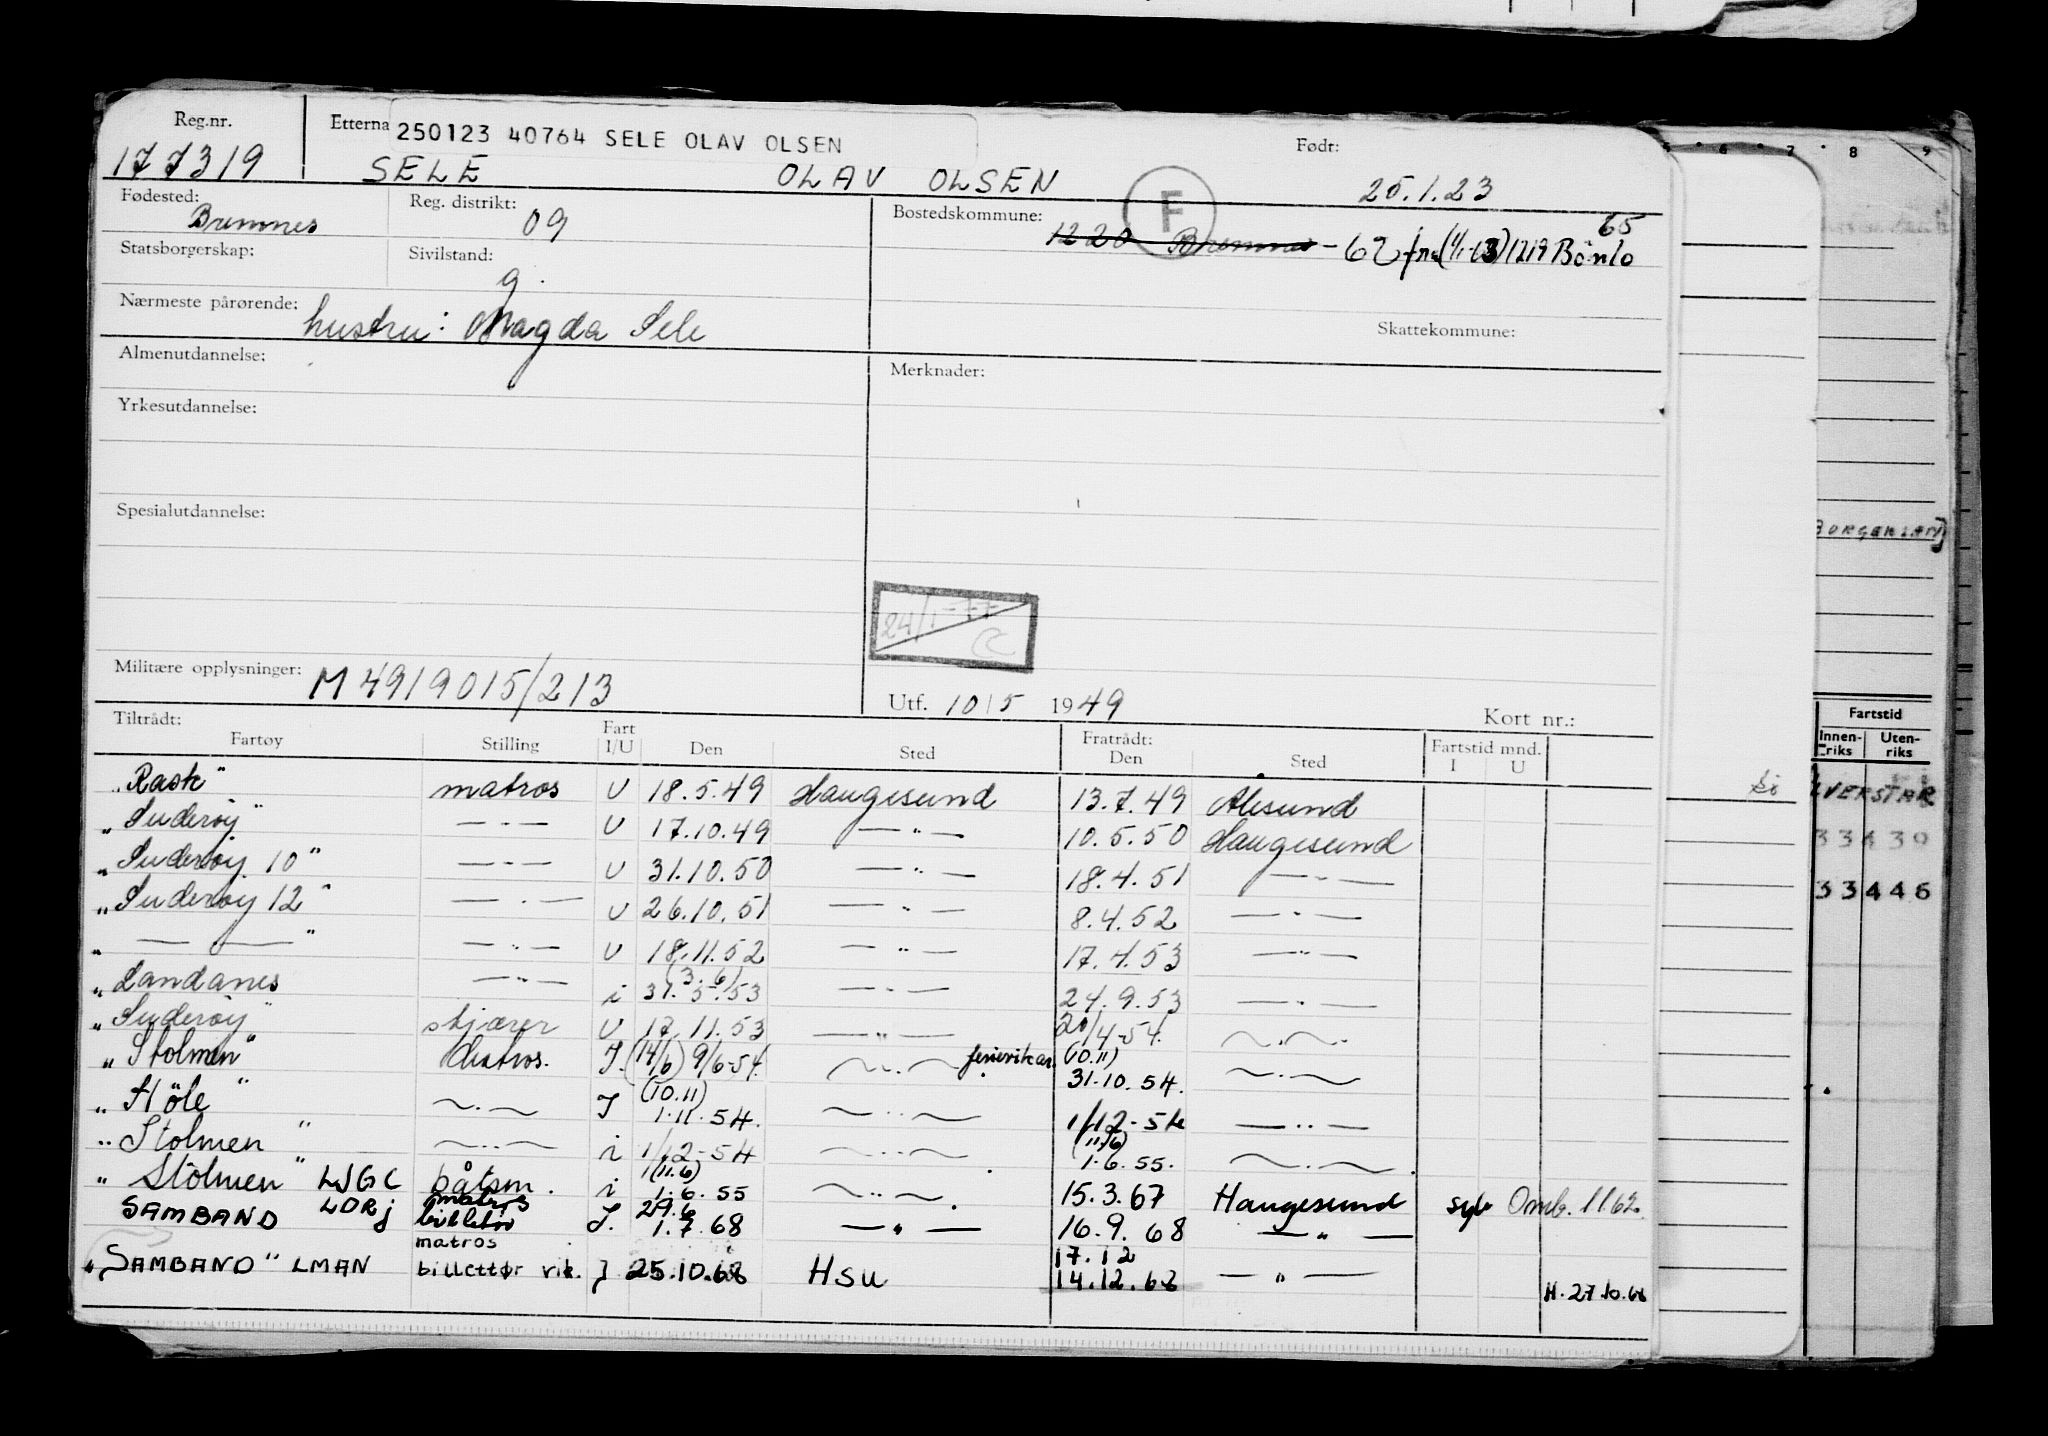 Reg.nr.
177319
Etterna
250123 40764 SELE OLAV OLSEN
SELE OLAV OLSEN
Født:
25.1.23
Fødested:
Bremnes
Reg. distrikt:
09
Bostedskommune:
F
1220 Bremnes - 62 fra (1/1-63) 1219 Bömlo
65
Statsborgerskap:
Sivilstand:
g.
Nærmeste pårørende:
hustru: Magda Sele
Skattekommune:
Almenutdannelse:
Merknader:
Yrkesutdannelse:
Spesialutdannelse:
24/1-77
Militære opplysninger:
M 4919015/213
Utf. 10/5 1949
Kort nr.:
Tiltrådt:
Fartøy Stilling Fart I/U Den Sted
Fratrådt:
Den Sted
Fartstid mnd.
I U
"Rask" matros U 18.5.49 Haugesund 13.7.49 Ålesund
"Suderøy" — " — U 17.10.49 — " — 10.5.50 Haugesund
"Suderøy 10" — " — U 31.10.50 — " — 18.4.51 — " —
"Suderøy 12" — " — U 26.10.51 — " — 8.4.52 — " —
" — " — " — " — U 18.11.52 — " — 17.4.53 — " —
"Sandanes — " — i (3.6) 31.5.53 — " — 24.9.53 — " —
"Suderøy" skjærer U 17.11.53 — " — 20/4-54. — " —
"Stolmen" Matros. I. (14/6) 9/6-54. — " — ferievikar. (10.11) 31.10.54. — " —
"Høle" — " — I (10.11) 1.11.54. — " — 1/12-54 — " —
"Stolmen" — " — i 1/12-54 — " — (11/6) 1.6.55. — " —
"Stolmen" LJGC båtsm. i (11.6) 1.6.55 — " — 15.3.67 Haugesund syk Omb. 11.62.
SAMBAND LDRJ matros billettør I. 29.6 1.7.68 — " — 16.9.68 — " —
"SAMBAND" LMAN matros billettør vik. I 25.10.68 HSU 17.12 14.12.68 — " — H. 27.10.68
5 6 7 8 9
BORGERLAND
Fartstid
Innen-riks Uten-riks
33439
33446